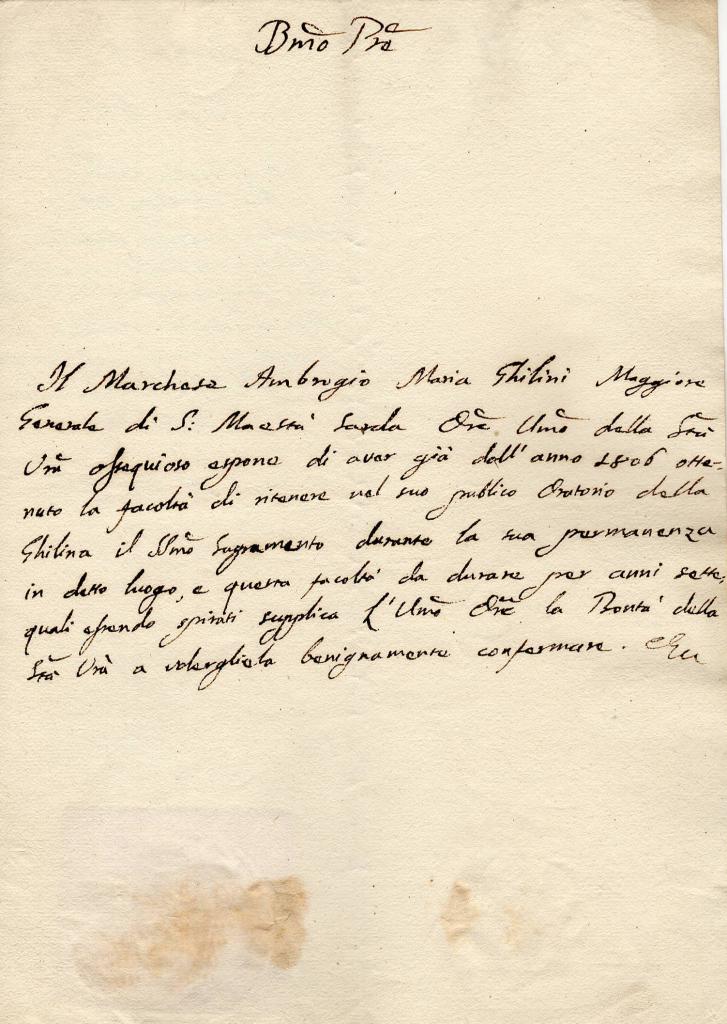 Bmõ Prẽ
Il Marchese Ambrogio Maria Ghilini Maggiore
Generale di S: Maestà Sarda Orẽ Umõ della Stà
Vrã ossequioso espone di aver già dall'anno 1806 otte=
nuto la facoltà di ritenere nel suo publico Oratorio della
Ghilina il SSmõ Sagramento durante la sua permanenza
in detto luogo, e questa facoltà da durare per anni sette,
quali essendo spirati supplica l'Umõ Orẽ la Bontà della
Stà Vrã a volergliela benignamente confermare. Che